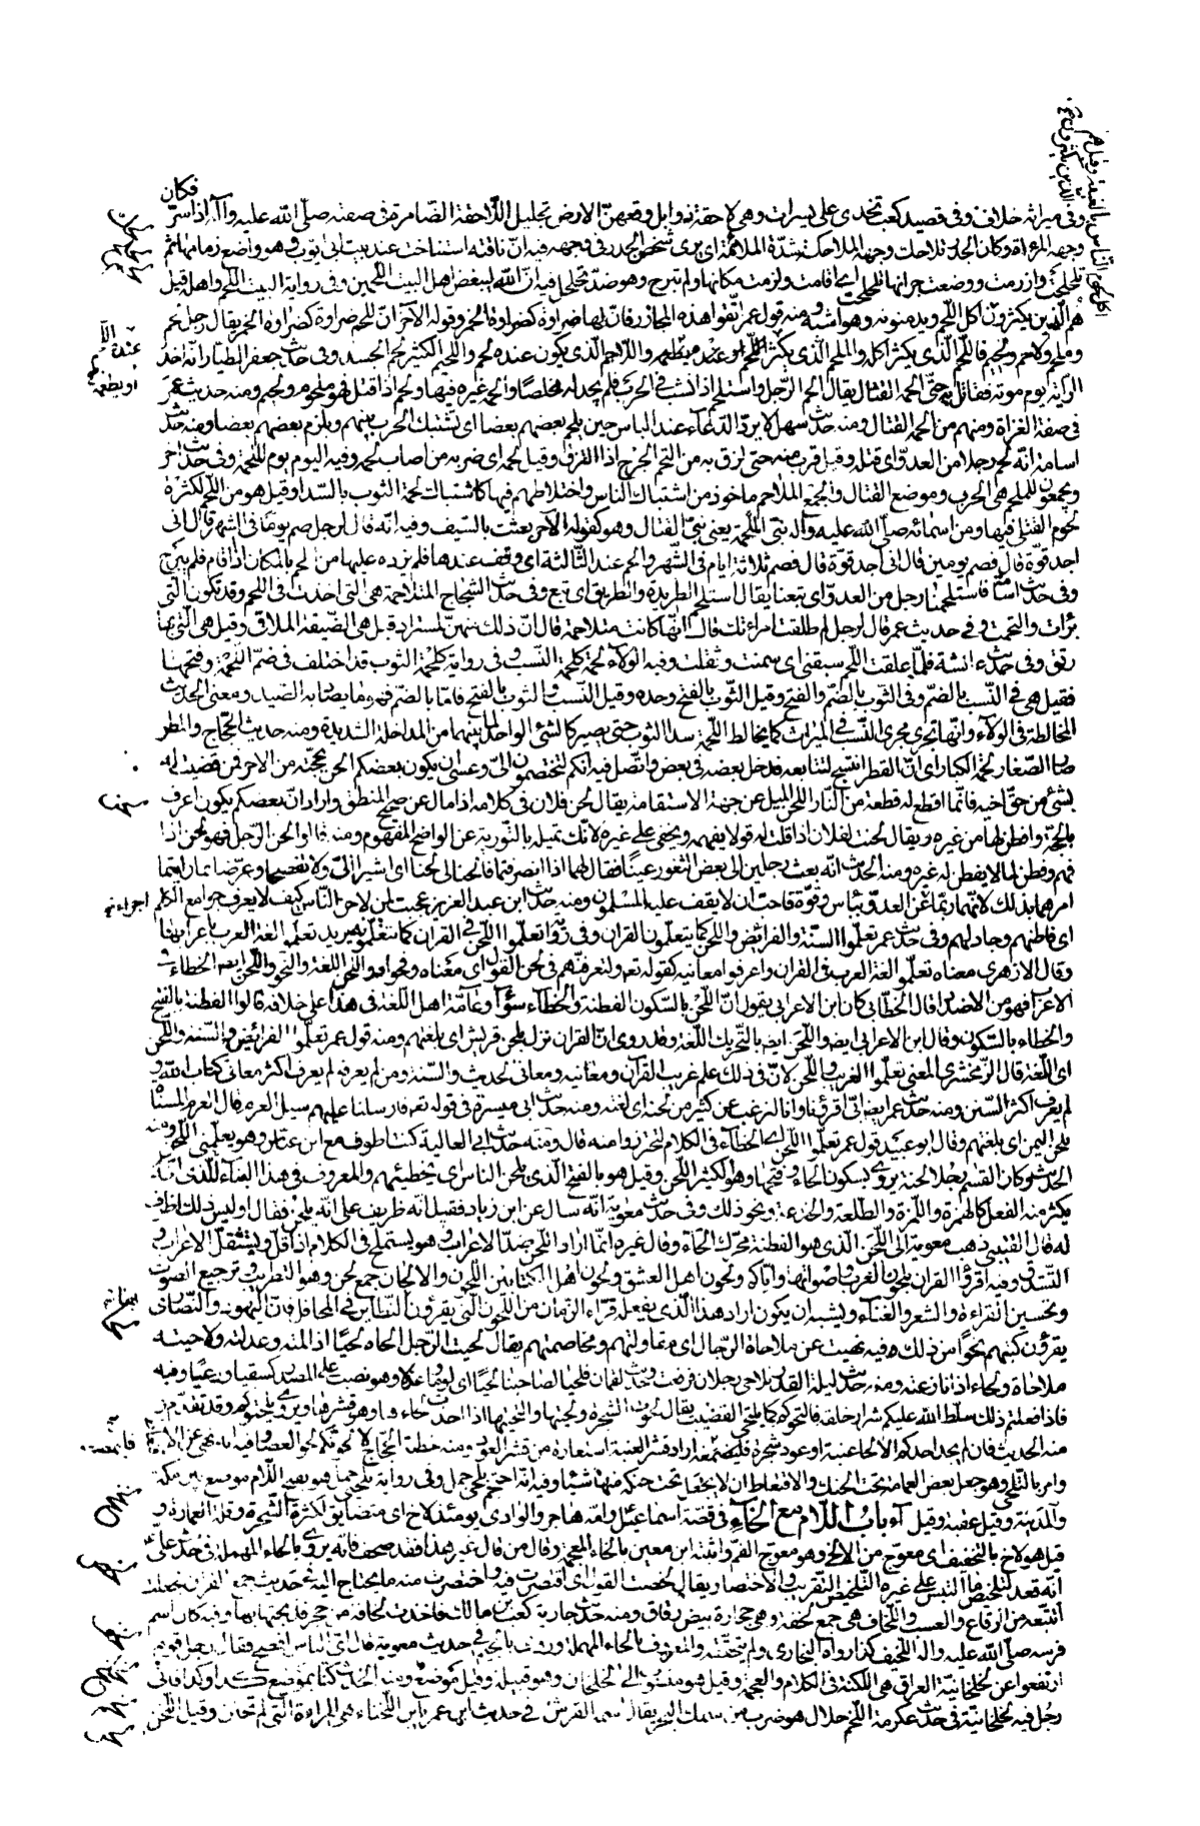 فكان
وفى ميراثه خلاف وفى قصيد كعب تخدى على يسرات وهى لاحقة ذوابل وقعهن الارض تحليل اللاحقة الضامرة فى صفته صلّى الله عليه وآله اذا سرّ
وجهه المرآة وكان الجدر تلاحك وجهه الملاحكة شدّة الملائمة اى يرى شخص الجدر فى وجهه فيه انّ ناقته استناخت عند بيت ابى ايوب وهو واضع زمامها ثم
تلحلحت وارزمت ووضعت جرانها تلحلحت اى اقامت ولزمت مكانها ولم تبرح وهو ضدّ تحلحل فيه انّ الله ليبغض اهل البيت اللحمين وفى رواية البيت اللحم واهله قيل
هم الذين يكثرون اكل اللحم ويدمنونه وهو اشبه ومنه قول عمر اتّقوا هذه المجازر فانّ لها ضراوة كضراوة الخمر وقوله الآخر انّ للحم ضراوة كضراوة الخمر يقال رجل لحم
وملحم ولاحم ولحيم فاللحم الذى يكثر اكله والملحم الذى يكثر عنده اللحم او يطعمه واللاحم الذى يكون عنده لحم واللحيم الكثير لحم الجسد وفى حديث جعفر الطيار انه اخذ
الراية يوم موتة فقاتل بها حتّى الحمه القتال يقال الحم الرّجل واستلحم اذا نشب فى الحرب فلم يجد له مخلصا والحمه غيره فيها ولحم اذا قتل فهو ملحوم ولحيم ومنه حديث عمر
فى صفة الغزاة ومنهم من الحمه القتال ومنه حديث سهل لا يردّ الدّعاء عند الباس حين يلحم بعضهم بعضا اى تشتبك الحرب بينهم ويلزم بعضهم بعضا ومنه حديث
اسامة انه لحم رجلا من العدوّ اى قتله وقيل قرب منه حتى لزق به من التحم الجرح اذا التزق وقيل لحمه اى ضربه من اصاب لحمه وفيه اليوم يوم الملحمة وفى حديث آخر
ويجمعون للملحمة هى الحرب وموضع القتال والجمع الملاحم ماخوذ من اشتباك الناس واختلاطهم فيها كاشتباك لحمة الثوب بالسّدا وقيل هو من اللحم لكثرة
لحوم القتلى فيها ومن اسمائه صلّى الله عليه وآله نبىّ الملحمة يعنى نبىّ القتال وهو كقوله الآخر بعثت بالسّيف وفيه انّه قال لرجل صم يوما فى الشهر قال انى
اجد قوة قال فصم يومين قال انى اجد قوّة قال فصم ثلاثة ايام فى الشّهر والحم عند الثّالثة اى وقف عندها فلم يزده عليها من الحم بالمكان اذا اقام فلم يبرح
وفى حديث اسامة فاستلحمنا رجل من العدوّ اى تبعنا يقال استلحم الطريدة والطريق اى تبع وفى حديث الشّجاج المتلاحمة هى التى اخذت فى اللحم وقد تكون التى
برأت والتحمت وفى حديث عمر قال لرجل لم طلقت امرأتك قال انّها كانت متلاحمة قال انّ ذلك منهنّ لمستراد قيل هى الضيّقة الملاقى وقيل هى التى بها
رتق وفى حديث عائشة فلمّا علقت اللحم سبقنى اى سمنت وثقلت وفيه الولاء لحمة كلحمة النّسب وفى رواية كلحمة الثوب قد اختلف فى ضمّ اللحمة وفتحها
فقيل هى فى النّسب بالضمّ وفى الثوب بالضّم والفتح وقيل الثّوب بالفتح وحده وقيل النّسب والثوب بالفتح فامّا بالضّم فهو ما يصاد به الصّيد ومعنى الحديث
المخالطة فى الولاء وانّها تجرى مجرى النّسب فى الميراث كما يخالط اللّحمة سدا الثوب حتى يصير كالشئ الواحد لما بينهما من المداخلة الشديدة ومنه حديث الحجّاج والمطر
صار الصّغار لحمة الكبار اى انّ القطر انتسج لتتابعه فدخل بعضه فى بعض واتّصل فيه انكم لتختصمون الىّ وعسى ان يكون بعضكم الحن بحجّته من الآخر فمن قضيت له
بشئ من حقّ اخيه فانّما اقطع له قطعة من النّار اللحن الميل عن جهة الاستقامة يقال لحن فلان فى كلامه اذا مال عن صحيح المنطق واراد انّ بعضكم يكون اعرف
بالحجّة وافطن لها من غيره ويقال لحنت لفلان اذا قلت له قولا يفهمه ويخفى على غيره لانّك تميله بالتّورية عن الواضح المفهوم ومنه قالوا لحن الرّجل فهو لحن اذا
فهم وفطن لما لا يفطن له غيره ومنه الحديث انّه بعث رجلين الى بعض الثغور عينا فقال لهما اذا انصرفتما فالحنا لى لحنا اى اشيرا الىّ ولا تفصحا وعرّضا بما رايتما
امرهما بذلك لانّهما ربّما اخبرا عن العدوّ ببأس وقوّة فاحبّ ان لا يقف عليه المسلمون ومنه حديث ابن عبد العزيز عجبت لمن لاحن النّاس كيف لا يعرف جوامع الكلم
اى فاطنهم وجادلهم وفى حديث عمر تعلّموا السّنّة والفرائض واللحن كما يتعلّمون القرآن وفى رواية تعلّموا اللحن فى القرآن كما تتعلّمونه يريد تعلّموا لغة العرب باعرابها
وقال الازهرى معناه تعلّموا لغة العرب فى القرآن واعرفوا معانيه كقوله تعه ولتعرفنّهم فى لحن القول اى معناه وفحواه واللحن اللغة والنّحو واللّحن ايضا الخطاء فى
الاعراب فهو من الاضداد قال الخطّابى كان ابن الاعرابى يقول انّ اللّحن بالسّكون الفطنة والخطاء سواء وعامّة اهل اللّغة فى هذا على خلافه قالوا الفطنة بالفتح
والخطاء بالسّكون وقال ابن الاعرابى ايضه واللّحن ايضه بالتّحريك اللّغة وقد روى انّ القرآن نزل بلحن قريش اى بلغتهم ومنه قول عمر تعلّموا الفرائض والسّنة واللّحن
اى اللّغة قال الزّمخشرى المعنى تعلّموا الغريب واللّحن لانّ فى ذلك علم غريب القرآن ومعانيه ومعانى الحديث والسّنّة ومن لم يعرفه لم يعرف اكثر معانى كتاب الله و
لم يعرف اكثر السّنن ومنه حديث عمر ايضه ابىّ اقرؤنا وانّا لنرغب عن كثير من لحنه اى لغته ومنه حديث ابى ميسرة فى قوله تعه فارسلنا عليهم سيل العرم قال العرم المسنّاة
بلحن اليمن اى بلغتهم وقال ابو عبيد قول عمر تعلّموا اللّحن اى الخطاء فى الكلام لتحترزوا منه قال ومنه حديث ابى العالية كنت اطوف مع ابن عبّاس وهو يعلّمنى اللحن ومنه
الحديث وكان القاسم رجلا لحنة يروى بسكون الحاء وفتحها وهو الكثير اللّحن وقيل هو بالفتح الّذى يلحّن الناس اى يخطّئهم والمعروف فى هذا البناء للّذى
يكثر منه الفعل كالهمزة واللّمزة والطّلعة والخدعة ونحو ذلك وفى حديث معوية انّه سال عن ابن زياد فقيل انّه ظريف على انّه يلحن فقال اوليس ذلك اظرف
له قال القتيبى ذهب معوية الى اللّحن الّذى هو الفطنة محرّك الحاء وقال غيره انّما اراد اللّحن ضدّ الاعراب وهو يستملح فى الكلام اذا قلّ ويستثقل الاعراب و
التّشدّق وفيه اقرؤا القرآن بلحون العرب واصواتها وايّاكم ولحون اهل العشق ولحون اهل الكتابين اللحون والالحان جمع لحن وهو التطريب وترجيع الصّوت
وتحسين القراءة والشعر والغناء ويشبه ان يكون اراد هذا الّذى يفعله قرّاء الزّمان من اللحون الّتى يقرؤن النّظائر فى المحافل فانّ اليهود والنّصارى
يقرؤن كتبهم نحوا من ذلك وفيه نهيت عن ملاحاة الرّجال اى مقاولتهم ومخاصمتهم يقال لحيت الرّجل الحاه لحيا اذا لمته وعذلته ولاحيته
ملاحاة ولحاء اذا نازعته ومنه حديث ليلة القدر تلاحى رجلان فرفعت وحديث لقمان فلحيا لصاحبنا لحيا اى لوما وعذلا وهو نصب على المصدر كسقيا ورعيا وفيه
فاذا فعلتم ذلك سلّط الله عليكم شرار خلقه فالتحوكم كما يلتحى القضيب يقال لحوت الشجرة ولحيتها والتحيتها اذا اخذت لحاءها وهو قشرها ويروى فلحتوكم وقد تقدّم
منه الحديث فان لم يجد احدكم الّا لحاء عنبة او عود شجرة فليمضغه اراد قشر العنبة استعارة من قشر العود ومنه خطبة الحجّاج لالحونّكم لحو العصا وفيه انه نهى عن الاقتعاط
وامر بالتلحّى وهو جعل بعض العمامة تحت الحنك والاقتعاط ان لا يجعل تحت حنكه منها شيئا وفيه انّه احتجم بلحى جمل وفى رواية بلحيى جمل هو بفتح اللّام موضع بين مكة
والمدينة وقيل عقبة وقيل ماء باب اللّام مع الخاء فى قصّة اسماعيل وامّه هاجر والوادى يومئذ لاخ اى متضايق لكثرة الشّجر وقلّة العمارة و
قيل هو لاخ بالتخفيف اى معوجّ من الالخى وهو معوجّ الفم واثبته ابن معين بالخاء المعجمة وقال من قال غير هذا فقد صحّف فانّه يروى بالحاء المهملة فى حديث على
انّه قعد لتلخيص ما التبس على غيره التّلخيص التّقريب والاختصار يقال لخّصت القول اى اقتصرت فيه واختصرت منه ما يحتاج اليه فى حديث جمع القرآن فجعلت
اتتبّعه من الرّقاع والعسب واللّخاف هى جمع لخفة وهى حجارة بيض رقاق ومنه حديث جارية كعب بن مالك فاخذت لخافة من حجر فذبحتها بها وفيه كان اسم
فرسه صلّى الله عليه وآله اللّخيف كذا رواه البخارى ولم يتحقّقه والمعروف بالحاء المهملة وروى بالجيم فى حديث معوية قال اىّ الناس افصح فقال رجل قوم
ارتفعوا عن لخلخانيّة العراق هى اللّكنة فى الكلام والعجمة وقيل هو منسوب الى لخلخان وهو قبيلة وقيل موضع ومنه الحديث كنّا بموضع كذا وكذا فاتى
رجل فيه لخلخانيّة فى حديث عكرمة اللّخم حلال هو ضرب من سمك البحر يقال اسمه القرش فى حديث ابن عمر يا ابن اللّخناء هى المرأة الّتى لم تختن وقيل اللّخن